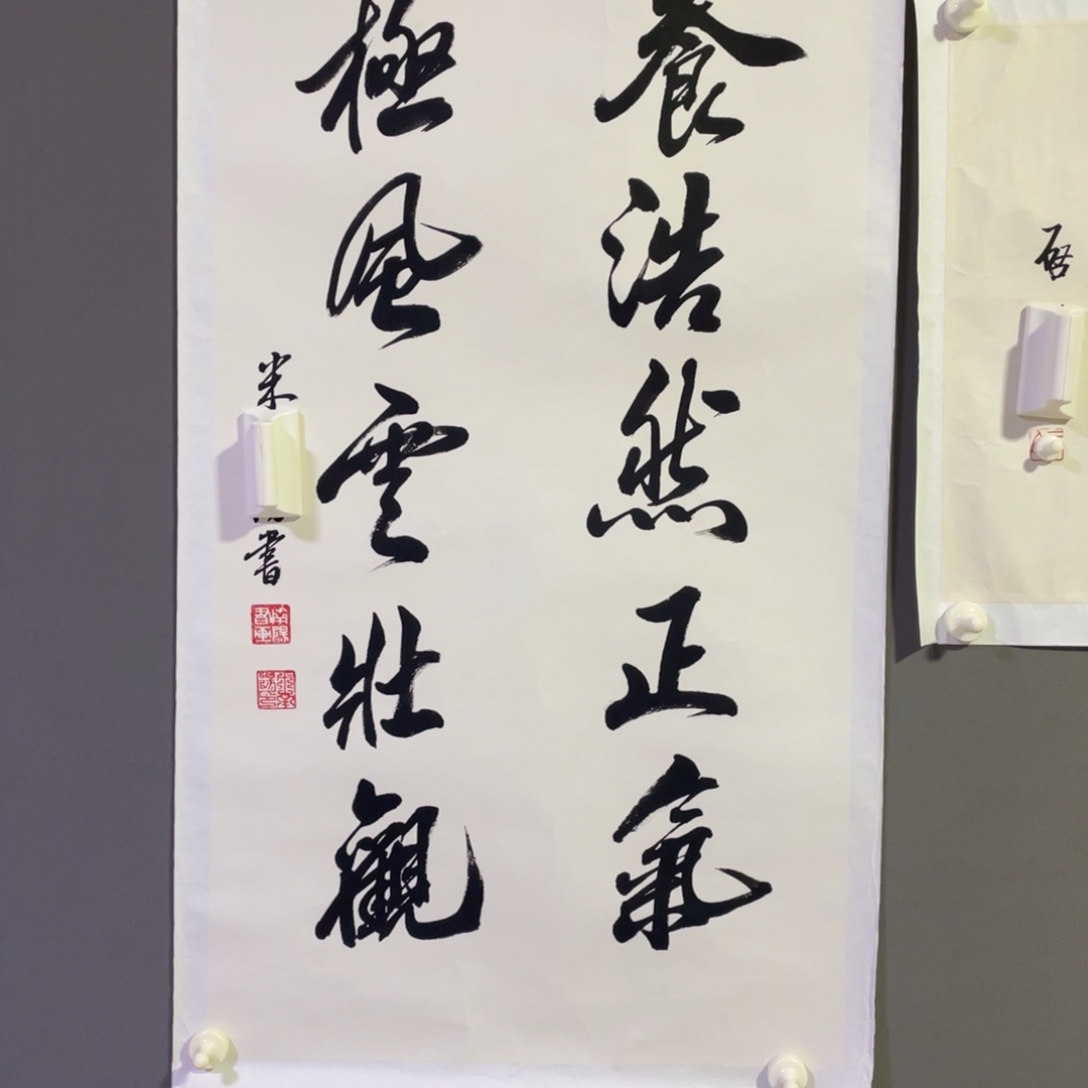 養浩然正氣
極風雲壯觀
米
書
啓